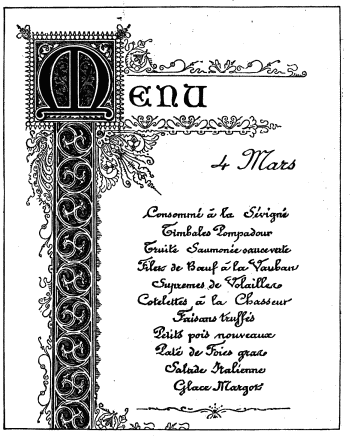 Menu
4 Mars
Consommé à la Sévigné
Timbales Pompadour
Truite Saumonée sauce verte
Filet de Bœuf à la Vauban
Supremes de Volailles
Cotelettes à la Chasseur
Faisans truffés
Petits pois nouveaux
Paté de Foies gras
Salade Italienne
Glace Margot